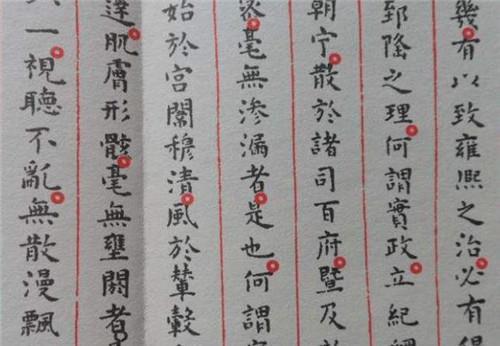 幾有以致雍熙之治必有
郅隆之理何謂實政立紀
朝宁散於諸司百府暨及於
密毫無渗漏者是也何謂實
始於宮闈穆清風於輦轂
達肌膚形骸毫無壅閼者
一視聽不亂無散漫飄